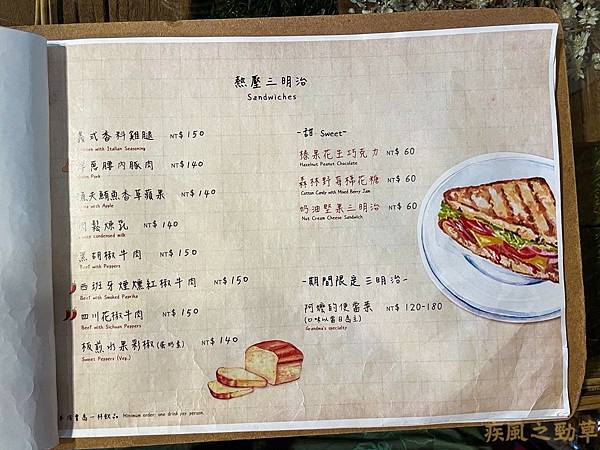 熱壓三明治
Sandwiches
式香料雞腿 NT$ 150
with Italian Seasoning
蔥腰內豚肉 NT$ 140
Pork
天鮪魚香草蘋果 NT$ 140
with Apple
鬆煉乳 NT$ 140
condensed milk
黑胡椒牛肉 NT$ 150
Beef with Peppers
西班牙煙燻紅椒牛肉 NT$ 150
Beef with Smoked Paprika
四川花椒牛肉 NT$ 150
Beef with Sichuan Peppers
板煎水果彩椒(蛋奶素) NT$ 140
Sweet Peppers (Veg.)
一杯飲品 Minimum order: one drink per person.
-甜 Sweet-
榛果花生巧克力 NT$ 60
Hazelnut Peanut Chocolate
森林野莓棉花糖 NT$ 60
Cotton Candy with Mixed Berry Jam
奶油堅果三明治 NT$ 60
Nut Cream Cheese Sandwich
-期間限定三明治-
阿嬤的便當菜 NT$ 120-180
(口味以當日為主)
Grandma's specialty
疾風之勁草